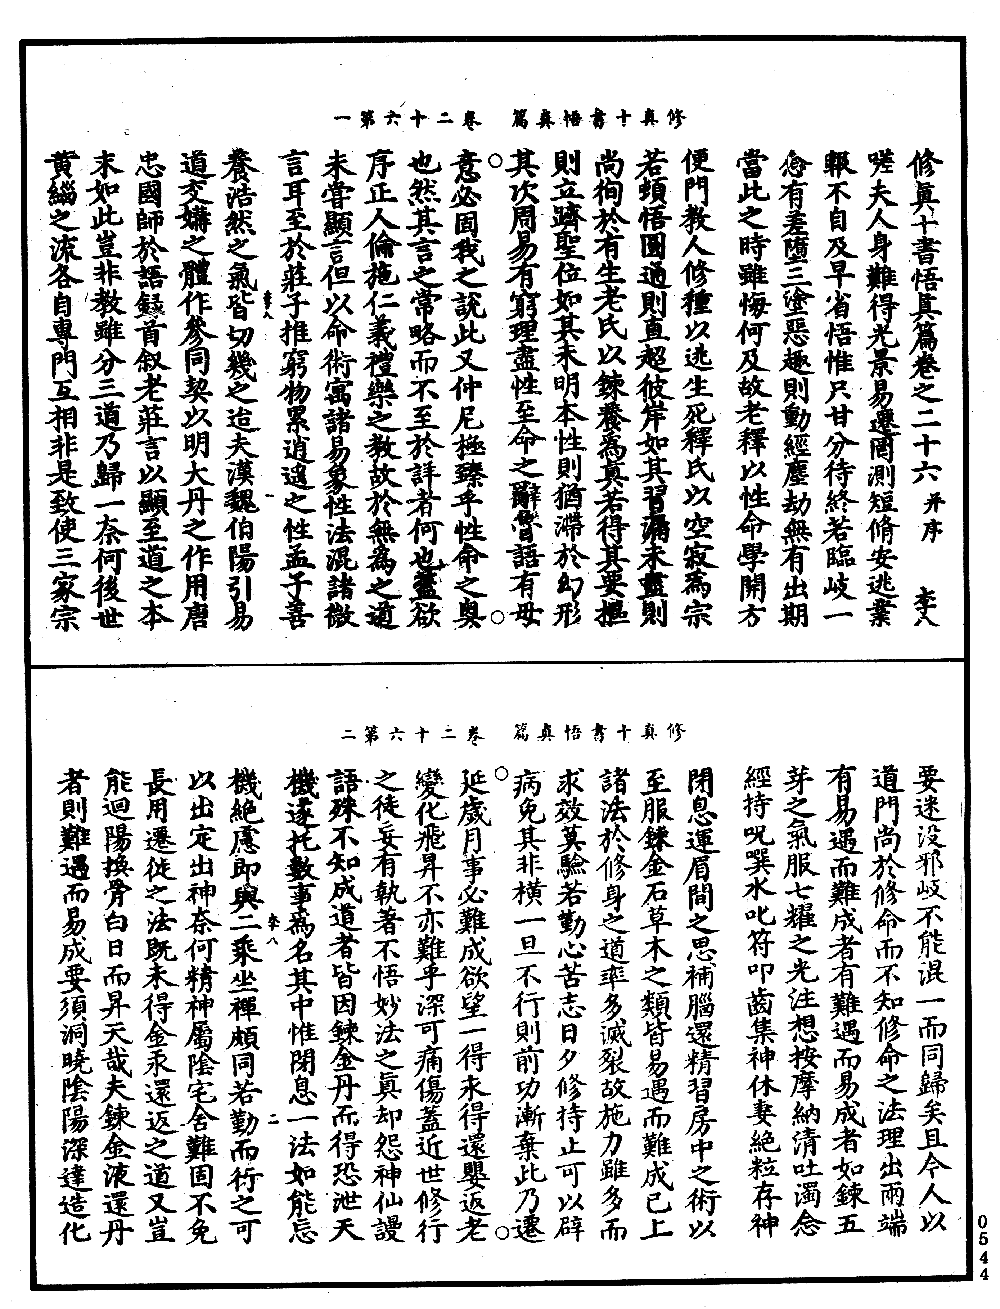 修真十書悟真篇　卷二十六第一
修真十書悟真篇卷之二十六 并序　李八
嗟夫人身難得光景易遷罔測短脩安逃業
報不自及早省悟惟只甘分待終若臨岐一
念有差墮三塗惡趣則動經塵劫無有出期
當此之時雖悔何及故老釋以性命學開方
便門教人修種以逃生死釋氏以空寂為宗
若頓悟圓通則直超彼岸如其習漏未盡則
尚徇於有生老氏以鍊養為真若得其要樞
則立躋聖位如其未明本性則猶滯於幻形
其次周易有窮理盡性至命之辭魯語有毋
意必固我之說此又仲尼極臻乎性命之奧
也然其言之常略而不至於詳者何也蓋欲
序正人倫施仁義禮樂之教故於無為之道
未嘗顯言但以命術寓諸易象性法混諸微
言耳至於莊子推窮物累逍遙之性孟子善
李八
養浩然之氣皆切幾之迨夫漢魏伯陽引易
道交媾之體作參同契以明大丹之作用唐
忠國師於語錄首叙老莊言以顯至道之本
末如此豈非教雖分三道乃歸一奈何後世
黃緇之流各自專門互相非是致使三家宗
修真十書悟真篇　卷二十六第二
要迷没邪岐不能混一而同歸矣且今人以
道門尚於修命而不知修命之法理出兩端
有易遇而難成者有難遇而易成者如鍊五
芽之氣服七耀之光注想按摩納清吐濁念
經持呪噀水叱符叩齒集神休妻絕粒存神
閉息運眉間之思補腦還精習房中之術以
至服鍊金石草木之類皆易遇而難成已上
諸法於修身之道率多滅裂故施力雖多而
求效莫驗若勤心苦志日夕修持止可以辟
病免其非橫一旦不行則前功漸棄此乃遷
延歲月事必難成欲望一得永得還嬰返老
變化飛昇不亦難乎深可痛傷蓋近世修行
之徒妄有執著不悟妙法之真却怨神仙謾
語殊不知成道者皆因鍊金丹而得恐泄天
機遂托數事為名其中惟閉息一法如能忘
李八　二
機絕慮即與二乘坐禪頗同若勤而行之可
以出定出神奈何精神屬陰宅舍難固不免
長用遷徙之法既未得金汞還返之道又豈
能迴陽換骨白日而昇天哉夫鍊金液還丹
者則難遇而易成要須洞曉陰陽深達造化
0544